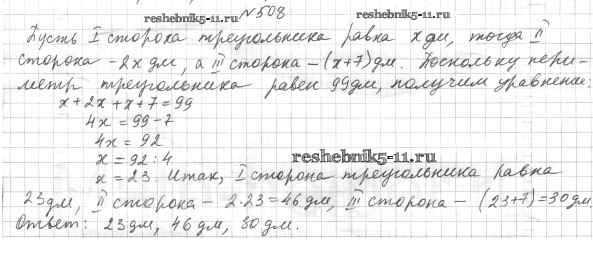 reshebnik5-11.ru
№508
Пусть I сторона треугольника равна x дм, тогда II
сторона - 2x дм, а III сторона - (x+7) дм. Поскольку пери-
метр треугольника равен 99дм, получим уравнение:
x + 2x + x + 7 = 99
4x = 99 - 7
4x = 92
x = 92 : 4
reshebnik5-11.ru
x = 23. Итак, I сторона треугольника равна
23 дм, II сторона - 2·23 = 46 дм, III сторона - (23+7) = 30 дм.
Ответ: 23 дм, 46 дм, 30 дм.